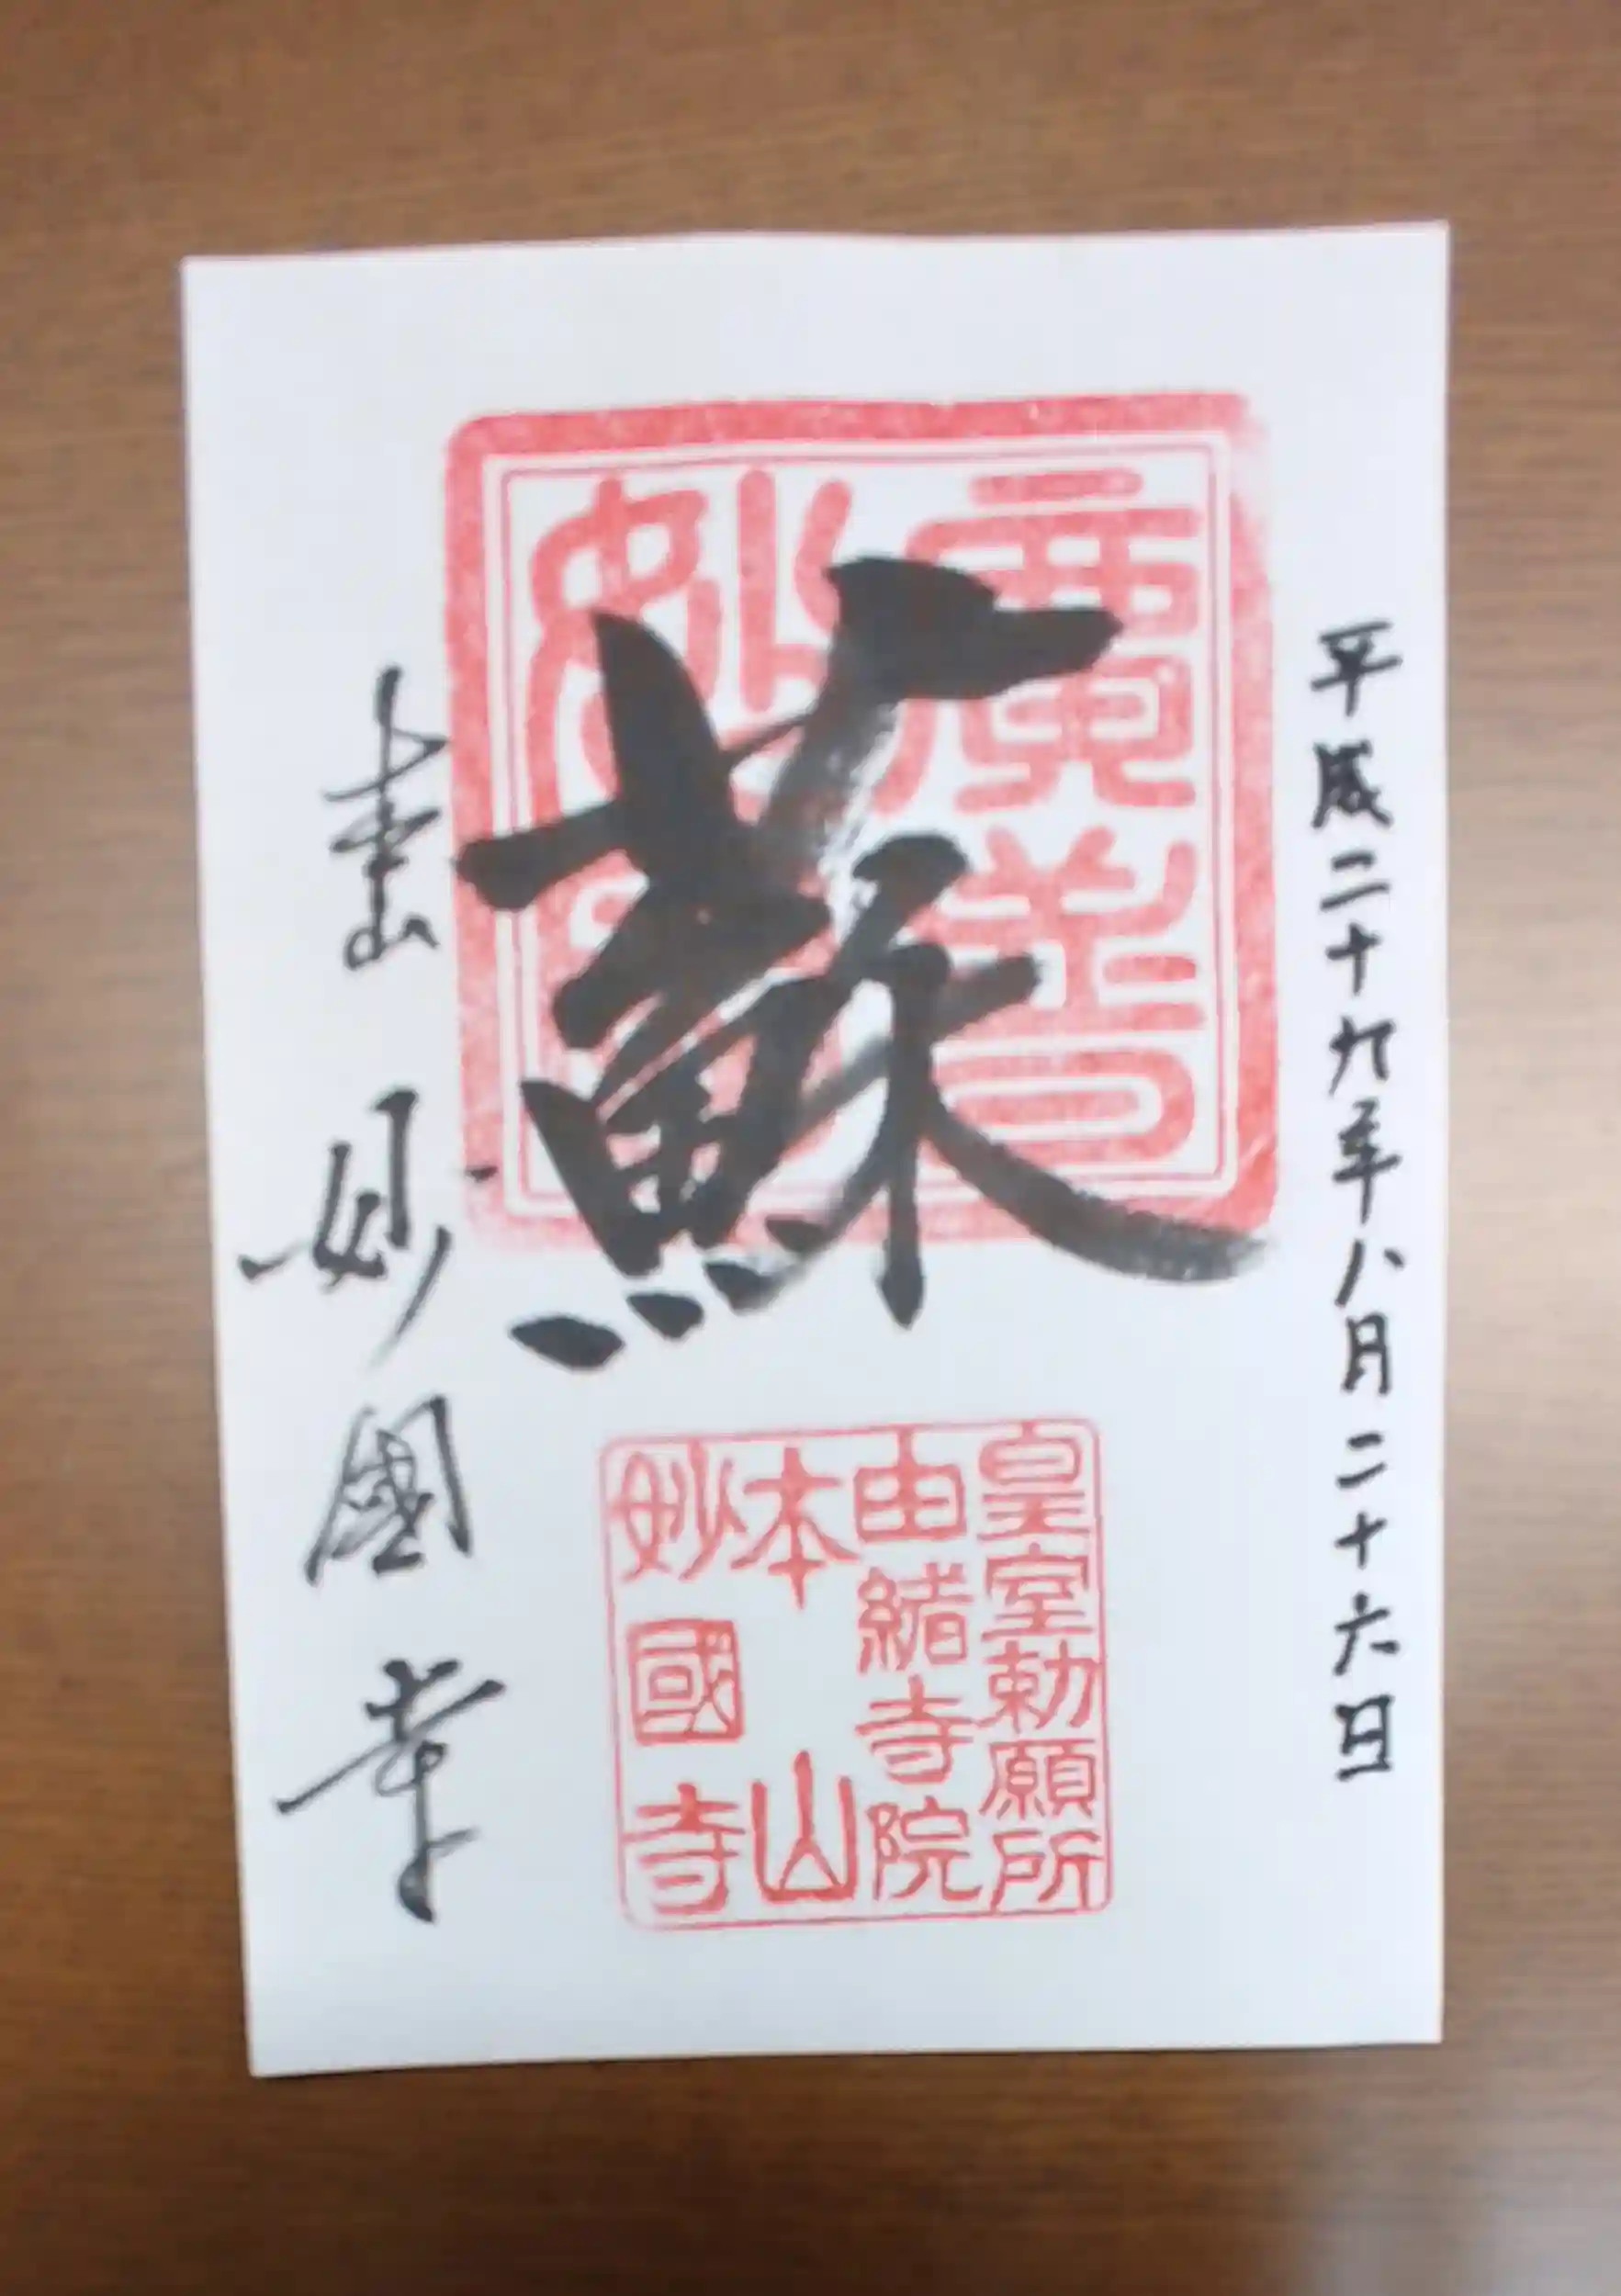 平成二十九年八月二十六日
蘇
廣普
妙國
皇室勅願所
由緒寺院
本山
妙國寺
妙國寺